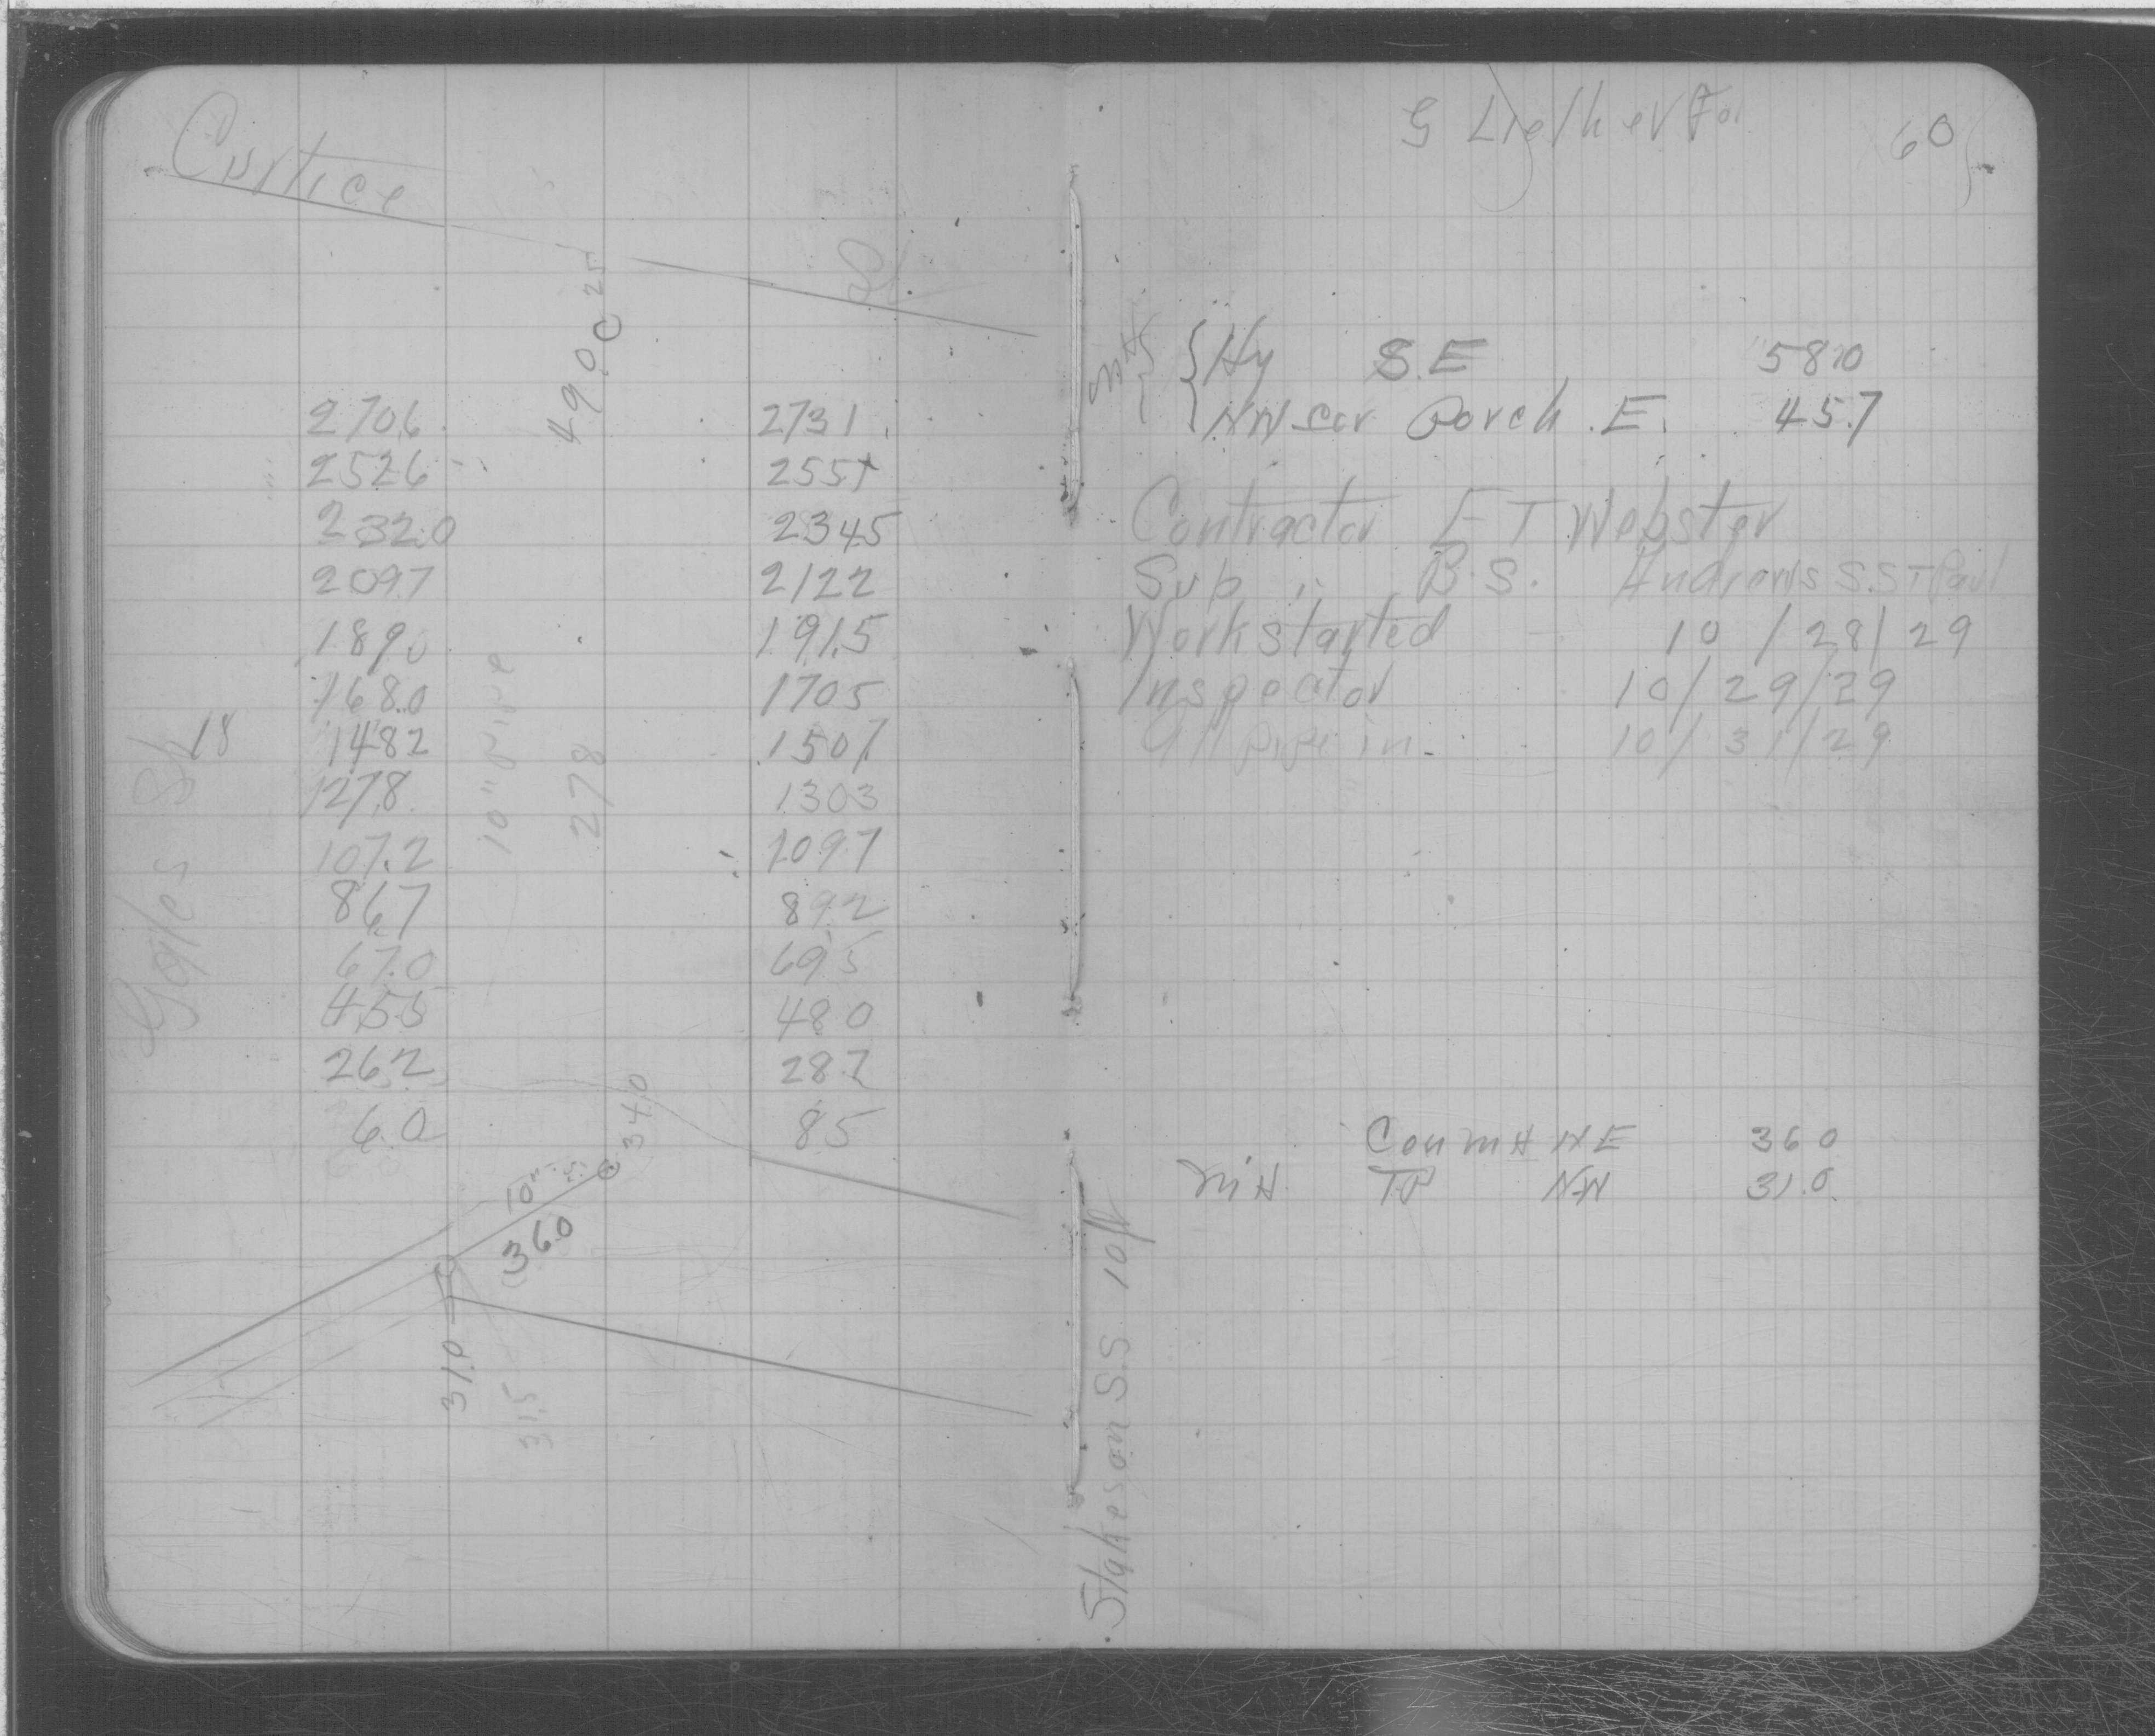 Curtice St
49.0 C 25
2706 2731
252.6 2551
232.0 2345
2097 2122
189.0 191.5
168.0 1705
18 1482 1507
127.8 1303
107.2 1097
86.7 89.2
67.0 69.5
45.5 48.0
26.2 28.7
6.0 8.5
Gates St
10" Pipe
278
34.0
10"
36.0
31.0
31.5
60
MH
Hy S.E 58.0
NW cor Porch E. 45.7
Contractor E T Webster
Sub " B.S. S. St Paul
Work started 10/28/29
Inspector 10/29/29
All pipe in 10/31/29
Con MH NE 36.0
MH TP NW 31.0
Stakes on S.S 10 ft